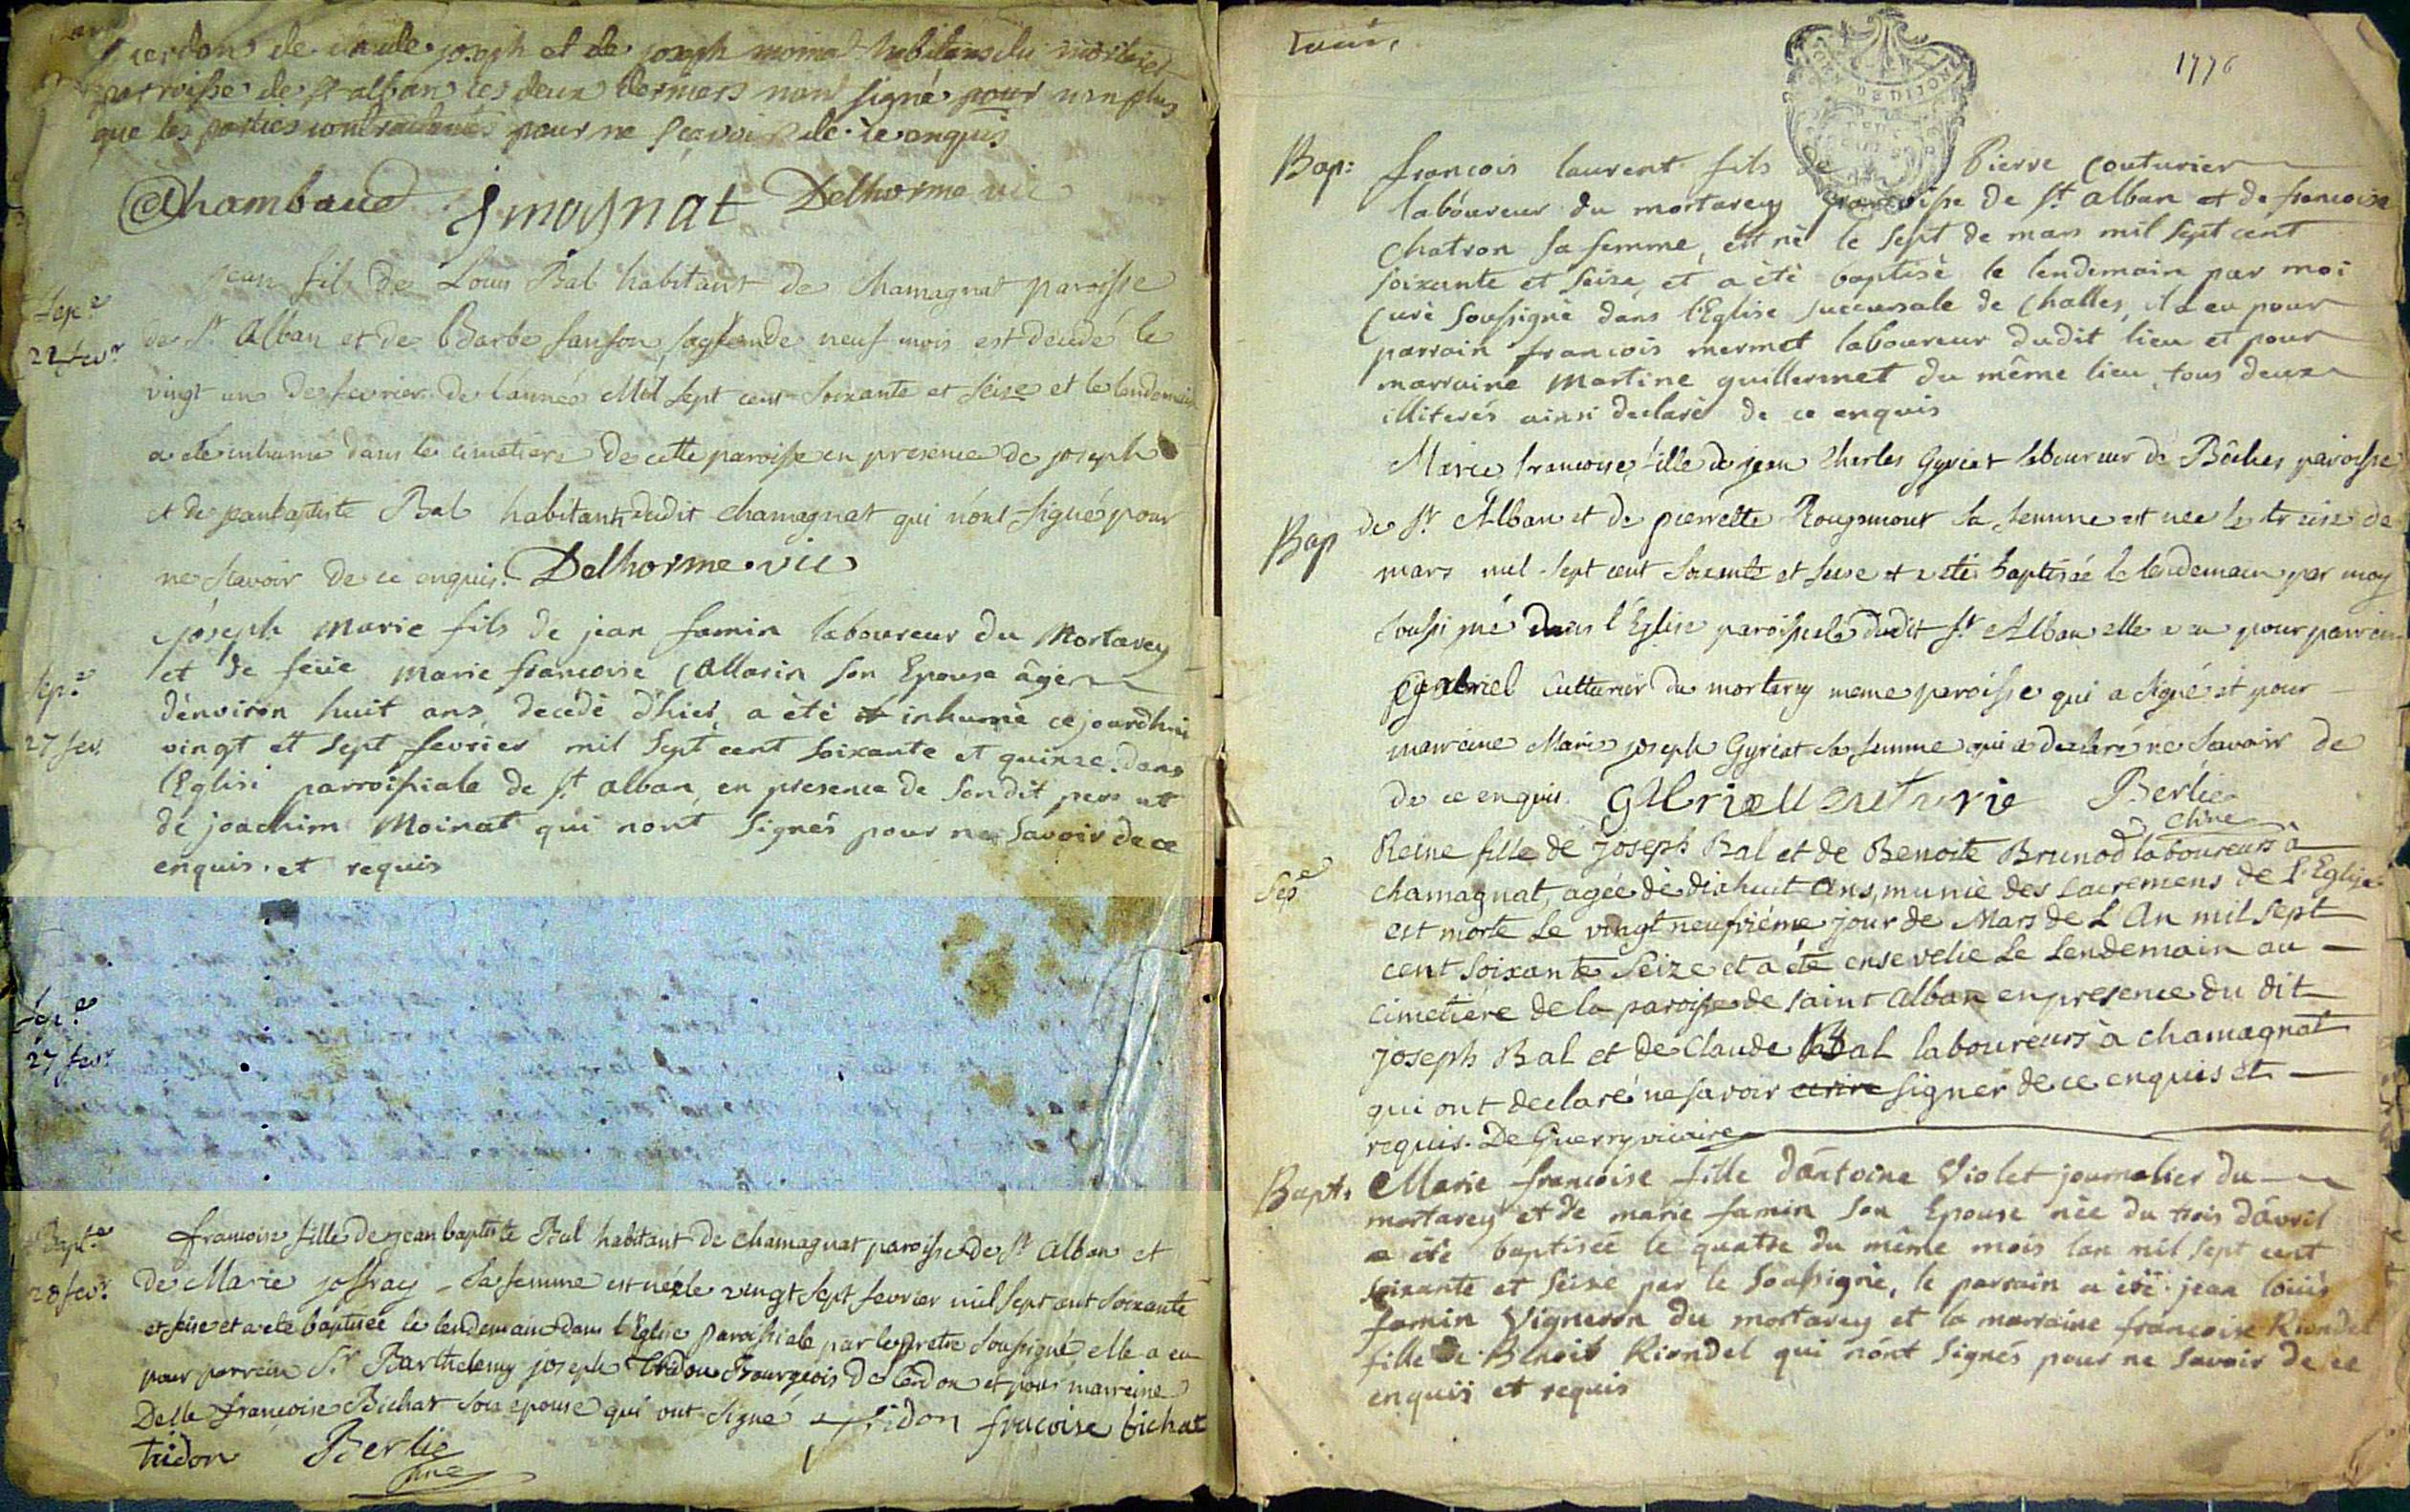 cerdon de claude joseph et de joseph moinat habitans du mortarey
parroisse de st alban ces deux derniers n'ont signé pour non plus
que les parties contractantes pour ne sçavoir de ce enquis
Chambaud jmoynat Delhorme vic
Sep.re
22 fevr
jean fils de Louis Bal habitant de Chamagnat paroisse
de St Alban et de Barbe sanson, agé de neuf mois est decedé le
vingt un de fevrier de l'année Mil sept cent soixante et seize et le lendemain
a eté inhumé dans le cimetiere de cette paroisse en presence de joseph
et de jean baptiste Bal habitants dudit chamagnat qui n'ont signé pour
ne scavoir de ce enquis. Delhorme vic
Sep.re
27 fev.
joseph Marie fils de jean famin laboureur du Mortarey
et de feüe marie francoise Callarin son Epouse âgé
d'environ huit ans, decédé d'hier, a été inhumé ce jourdhui
vingt et sept fevrier mil sept cent soixante et quinze dans
l'Eglise parroissiale de st alban, en presence de sondit pere et
de joachim Moinat qui n'ont signés pour ne savoir de ce
enquis et requis
Sep.re
27 fevr
Bapt.e
28 fevr.
francoise fille de jean baptiste Bal habitant de chamagnat paroisse de St Alban et
de Marie joffray sa femme est née le vingt sept fevrier mil sept cent soixante
et seise et a eté baptisée le lendemain dans l'Eglise paroissiale par le prêtre soussigné elle a eu
pour parrein Sr Barthelemy joseph tridon Bourgeois de Cerdon et pour marreine
Delle françoise Bichat son epouse qui ont signé tridon francoise bichat
tridon Berlie
cure
1776
Bap: francois laurent fils de Pierre Couturier
laboureur du mortarey parroisse de st alban et de francoise
Chatron sa femme, est né le sept de mars mil sept cent
soixante et seize, et a été baptisé le lendemain par moi
Curé soussigné dans l'Eglise succursale de Challes, il a eu pour
parrain francois mermet laboureur dudit lieu et pour
marraine martine guillermet du même lieu, tous deux
illiterés ainsi declaré de ce enquis
Bap
Marie francoise fille de jean Charles Gyriat laboureur de Bôches paroisse
de St Alban et de pierrette Rougemont sa femme est née le treise de
mars mil sept cent soixante et seise et a eté baptisée le lendemain par moy
soussigné dans l'Eglise paroissiale dudit St Alban elle a eu pour parrein
gabriel Cutturier du mortarey meme paroisse qui a signé et pour
marreine Marie joseph Gyriat sa femme qui a declaré ne savoir de
de ce enquis. Berlie
cure
Sep.e
Reine fille de joseph Bal et de Benoite Brunod laboureurs à
chamagnat, agée de dixhuit ans, munie des sacremens de l'Eglise
est morte le vingt neufvième jour de Mars de L An mil sept
cent soixante seize et a été ensevelie le Lendemain au
cimetiére de la paroisse de saint alban en presence du dit
joseph Bal et de claude Bal laboureurs à chamagnat
qui ont declaré ne savoir ecrire signer de ce enquis et
requis. De Guerry vicaire
Bapt. Marie francoise fille d'antoine Violet journalier du
mortarey et de marie famin son Epouse née du trois d'avril
a été baptisée le quatre du même mois lan mil sept cent
soixante et seize par le soussigné, le parrain a été jean louis
famin Vigneron du mortarey et la marraine francoise Riondel
fille de Benoit Riondel qui n'ont signés pour ne savoir de ce
enquis et requis